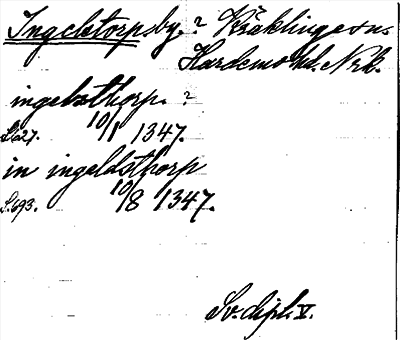 Ingelstorpsby. ? Kräklinge sn.
Hardemo hd. Nrk.
ingelzthorp. ?
S. 27. 10/11 1347.
in ingeldsthorp
S. 693. 10/8 1347.
Sv. dipl. V.